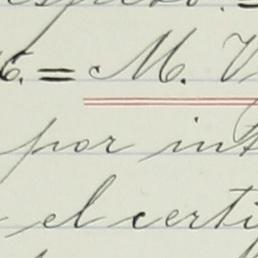 6. = M. V
por int
el certi